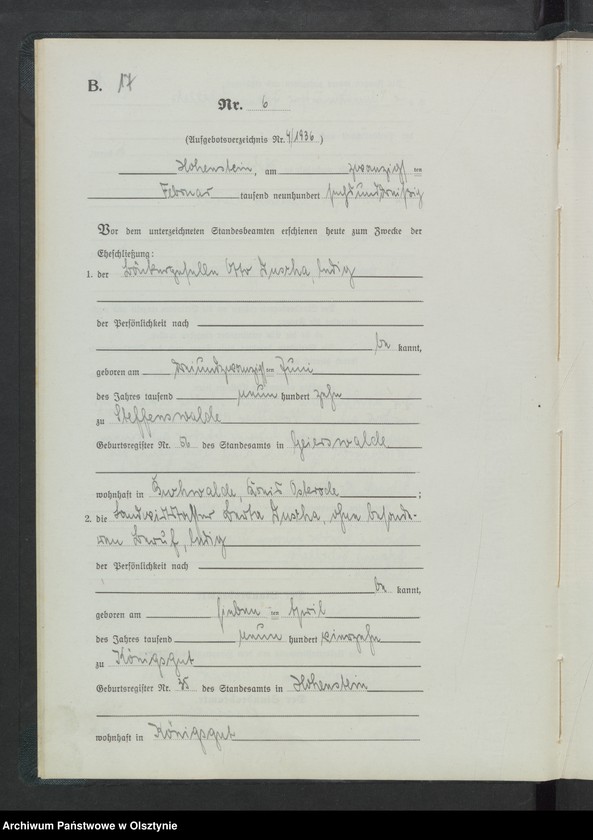 B. 17
Nr. 6
(Aufgebotsverzeichnis Nr. 4/1936)
Hohenstein, am zwanzigsten
Februar tausend neunhundert sechsunddreißig
Vor dem unterzeichneten Standesbeamten erschienen heute zum Zwecke der
Eheschließung:
1. der Bäckergeselle Otto, ledig
der Persönlichkeit nach
bekannt,
geboren am dreiundzwanzigsten Juni
des Jahres tausend neun hundert zehn
zu Steffenswalde
Geburtsregister Nr. des Standesamts in Geierswalde
wohnhaft in Buchwalde, Kreis Osterode;
2. die Landwirtstochter Berta, ohne besonde-
ren Beruf, ledig
der Persönlichkeit nach
bekannt,
geboren am sieben ten April
des Jahres tausend neun hundert vierzehn
zu Königsgut
Geburtsregister Nr. 35 des Standesamts in Hohenstein
wohnhaft in Königsgut
Archiwum Państwowe w Olsztynie